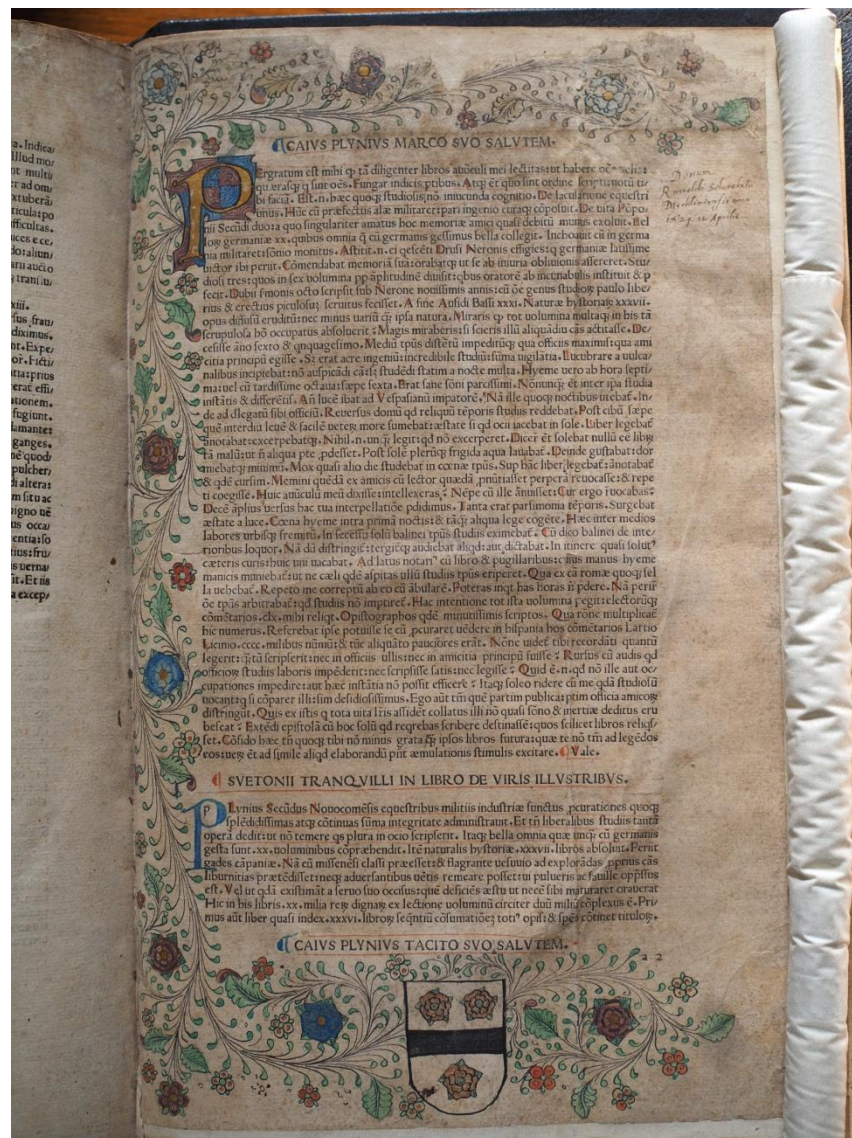 a. Indica/
Illud mor
t multi
r ad om/
xtuberā/
ticula:po
fficultas.
uces e ce/
do:alium/
arii aucto
g transiu/
xiii.
fus frau/
diximus.
nt. Expe/
or. Ficti/
tia:prius
erat effi/
ationem.
fugiunt.
lamante:
ganges.
ē quod/
pulcher/
di altera:
m situ ac
igno uē
us occa/
entia:fo
tius:fru/
s uerna/
it. Et iis
a excep/
CAIVS PLYNIVS MARCO SVO SALVTEM.
PErgratum est mihi ꝙ tā diligenter libros auūculi mei lectitas:ut habere oēs uelis:
quærasqꝫ q sint oēs. Fungar indicis ptibus. Atqꝫ ēt quo sint ordine scripti notū ti/
bi faciā. Est.n.hæc quoqꝫ studiosis nō iniucunda cognitio. De iaculatione equestri
unus. Hūc cū præfectus alæ militaret:pari ingenio curaqꝫ cōposuit. De uita Pōpo
nii Secūdi duo:a quo singulariter amatus hoc memoriæ amici quasi debitū munus exoluit. Bel
loꝝ germaniæ xx. quibus omnia q̄ cū germanis gessimus bella collegit. Inchoauit cū in germa
nia militaret:sōnio monitus. Astitit.n.ei qescēti Drusi Neronis effigies:q germaniæ latissime
uictor ibi periit. Cōmendabat memoriā suā:orabatqꝫ ut se ab iniuria obliuionis assereret. Stu/
diosi tres:quos in sex uolumina pp āplitudinē diuisit:qbus oratorē ab incunabulis instituit & p
fecit. Dubii sermonis octo scripsit sub Nerone nouissimis annis:cū oē genus studioꝝ paulo libe/
rius & erectius piculosū seruitus fecisset. A fine Aufidi Bassi xxxi. Naturæ hystoriaꝝ xxxvii.
opus diffusū eruditū:nec minus uariū q̄ ipsa natura. Miraris ꝙ tot uolumina multaqꝫ in his tā
scrupulosa hō occupatus absoluerit: Magis miraberis:si scieris illū aliquādiu cās actitasse. De/
cessisse āno sexto & qnquagesimo. Mediū tpus distētū impeditūqꝫ qua officiis maximis:qua ami
citia principū egisse. Sꝫ erat acre ingeniū:incredibile studiū:sūma uigilātia. Lucubrare a uulca/
nalibus incipiebat:nō auspicādi cā:sꝫ studēdi statim a nocte multa. Hyeme uero ab hora septi/
ma:uel cū tardissime octaua:sæpe sexta. Erat sane sōni parcissimi. Nōnunqꝫ ēt inter ipsa studia
instātis & differētis. An̄ lucē ibat ad Vespasianū impatorē. Nā ille quoqꝫ noctibus utebat̄. In/
de ad dlegatū sibi officiū. Reuersus domū qd reliquū tēporis studiis reddebat. Post cibū sæpe
quē interdiu leuē & facilē ueteꝝ more sumebat:æstate si qd ocii iacebat in sole. Liber legebat̄
ānotabat:excerpebatqꝫ. Nihil.n.unqꝫ legit:qd nō excerperet. Dicer̄ ēt solebat nullū eē libꝝ
tā malū:ut n̄ aliqua pte pdesset. Post solē plerūqꝫ frigida aqua lauabat̄. Deinde gustabat:dor
miebatqꝫ minimū. Mox quasi alio die studebat in cœnæ tpus. Sup hāc liber legebat̄:ānotabat̄
& qdē cursim. Memini quēdā ex amicis cū lector quædā pnūtiasset perperā reuocasse:& repe
ti coegisse. Huic auūculū meū dixisse:intellexeras: Nēpe cū ille ānuisset:Cur ergo reuocabas:
Decē āplius uersus hac tua interpellatiōe pdidimus. Tanta erat parsimonia tēporis. Surgebat
æstate a luce. Cœna hyeme intra primā noctis:& tāqꝫ aliqua lege cogēte. Hæc inter medios
labores urbisqꝫ fremitū. In secessu solū balinei tpus studiis eximebat̄. Cū dico balinei de inte/
rioribus loquor. Nā dū distringit̄:tergit̄qꝫ audiebat aliqd:aut dictabat. In itinere quasi solut⁹
cæteris curis:huic uni uacabat. Ad latus notari⁹ cū libro & pugillaribus:cuius manus hyeme
manicis muniebat̄:ut ne cæli qdē aspitas ullū studiis tpus eriperet. Qua ex cā romæ quoqꝫ sel
la uehebat̄. Repeto me correptū ab eo cū ābularē. Poteras inqt has horas n̄ pdere. Nā perir̄
ōe tpus arbitrabat̄:qd studiis nō imptiret̄. Hac intentione tot ista uolumina pegit:electorūqꝫ
cōmētarios.clx.mihi reliqt. Opistographos qdē minutissimis scriptos. Qua rōne multiplicat̄
hic numerus. Referebat ipse potuisse se cū pcuraret uēdere in hispania hos cōmētarios Lartio
Licinio.cccc.milibus nūmū:& tūc aliquāto pauciores erāt. Nōne uidet̄ tibi recordāti quantū
legerit:q̄tū scripserit:nec in officiis ullis:nec in amicitia principū fuisse: Rursus cū audis qd
officioꝝ studiis laboris impēderit:nec scripsisse satis:nec legisse: Quid ē.n.qd nō ille aut oc/
cupationes impedire:aut hæc instātia nō possit efficere: Itaqꝫ soleo ridere cū me qdā studiosū
uocant:q si cōparer illi:sim desidiosissimus. Ego aūt tm̄ quē partim publica:ptim officia amicoꝝ
distringūt. Quis ex istis q tota uita lr̄is assidēt collatus illi nō quasi sōno & inertiæ deditus eru
bescat: Extēdi epistolā cū hoc solū qd reqrebas scribere destinassē:quos scilicet libros reliqs/
set. Cōfido hæc tn̄ quoqꝫ tibi nō minus grata q̄ꝫ ipsos libros futura:quæ te nō tm̄ ad legēdos
eos:ueꝝ ēt ad simile aliqd elaborandū pn̄t æmulationis stimulis excitare. Vale.
SVETONII TRANQVILLI IN LIBRO DE VIRIS ILLVSTRIBVS.
PLynius Secūdus Nouocomēsis equestribus militiis industriæ functus pcurationes quoqꝫ
splēdidissimas atqꝫ cōtinuas sūma integritate administrauit. Et tn̄ liberalibus studiis tantā
operā dedit:ut nō temere qs plura in ocio scripserit. Itaqꝫ bella omnia quæ unqꝫ cū germanis
gesta sunt.xx.uoluminibus cōpræhendit. Itē naturalis hystoriæ.xxxvii.libros absoluit. Periit
gades cāpaniæ. Nā cū missenēsi classi præesset:& flagrante uesuuio ad explorādas pprius cās
liburnitias prætēdisset:neqꝫ aduersantibus uētis remeare posset:ui pulueris ac fauillæ oppssus
est. Vel ut qdā existimāt a seruo suo occisus:quē deficiēs æstu ut necē sibi maturaret orauerat
Hic in his libris.xx.milia reꝝ dignaꝝ ex lectione uoluminū circiter duū miliū cōplexus ē. Pri/
mus aūt liber quasi index.xxxvi.libroꝝ seqn̄tiū cōsumatiōeꝫ toti⁹ opis:& spēs cōtinet tituloꝝ.
CAIVS PLYNIVS TACITO SVO SALVTEM.
a 2